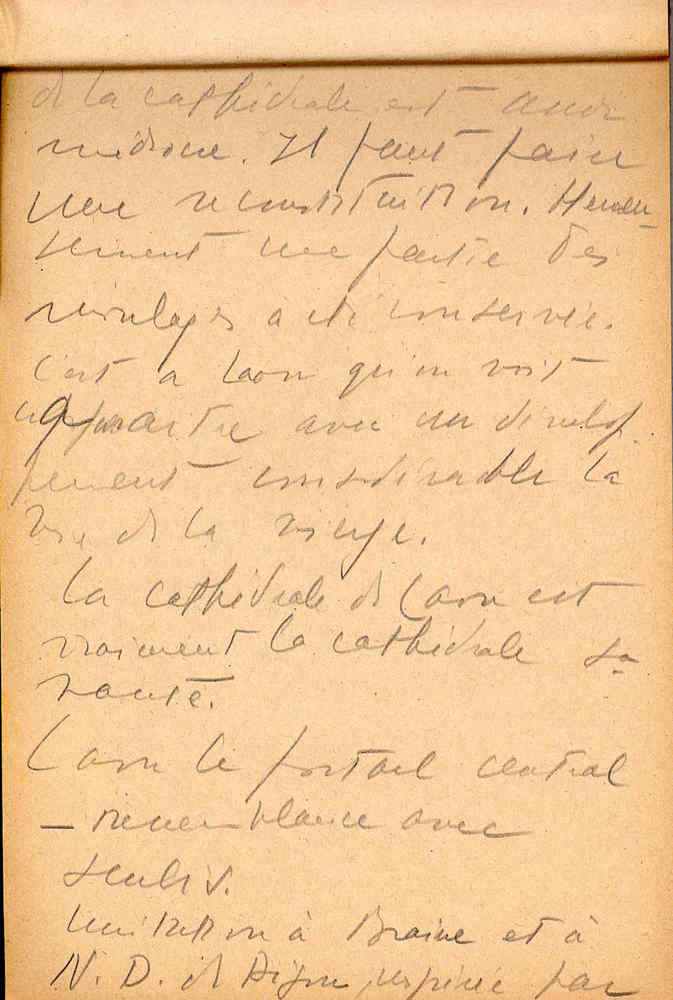 de la cathédrale est assez
médiocre. Il faut faire
une reconstitution. Heureu-
sement une partie des
moulages a été conservée.
C'est a Laon qu'on voit
apparaitre avec un dévelop
pement considérable la
vie de la vierge.
La cathédrale de Laon est
vraiment la cathédrale sa-
vante.
Laon le portail central
— ressemblance avec
Senlis.
Imitation à Braine et à
N. D. de Dijon, inspirée par